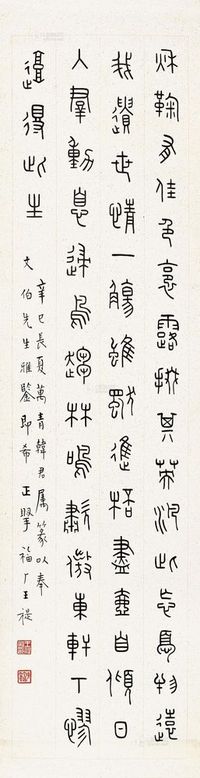 秌鞠有佳色裛露掇其英汎此忘憂物遠
我遺世情一觴雖獨進桮盡壺自傾日
入羣動息歸鳥趨林鳴嘯傲東軒下聊
復得此生
辛巳長夏萬青韓君属篆以奉
文伯先生雅鑒即希正 福厂王禔